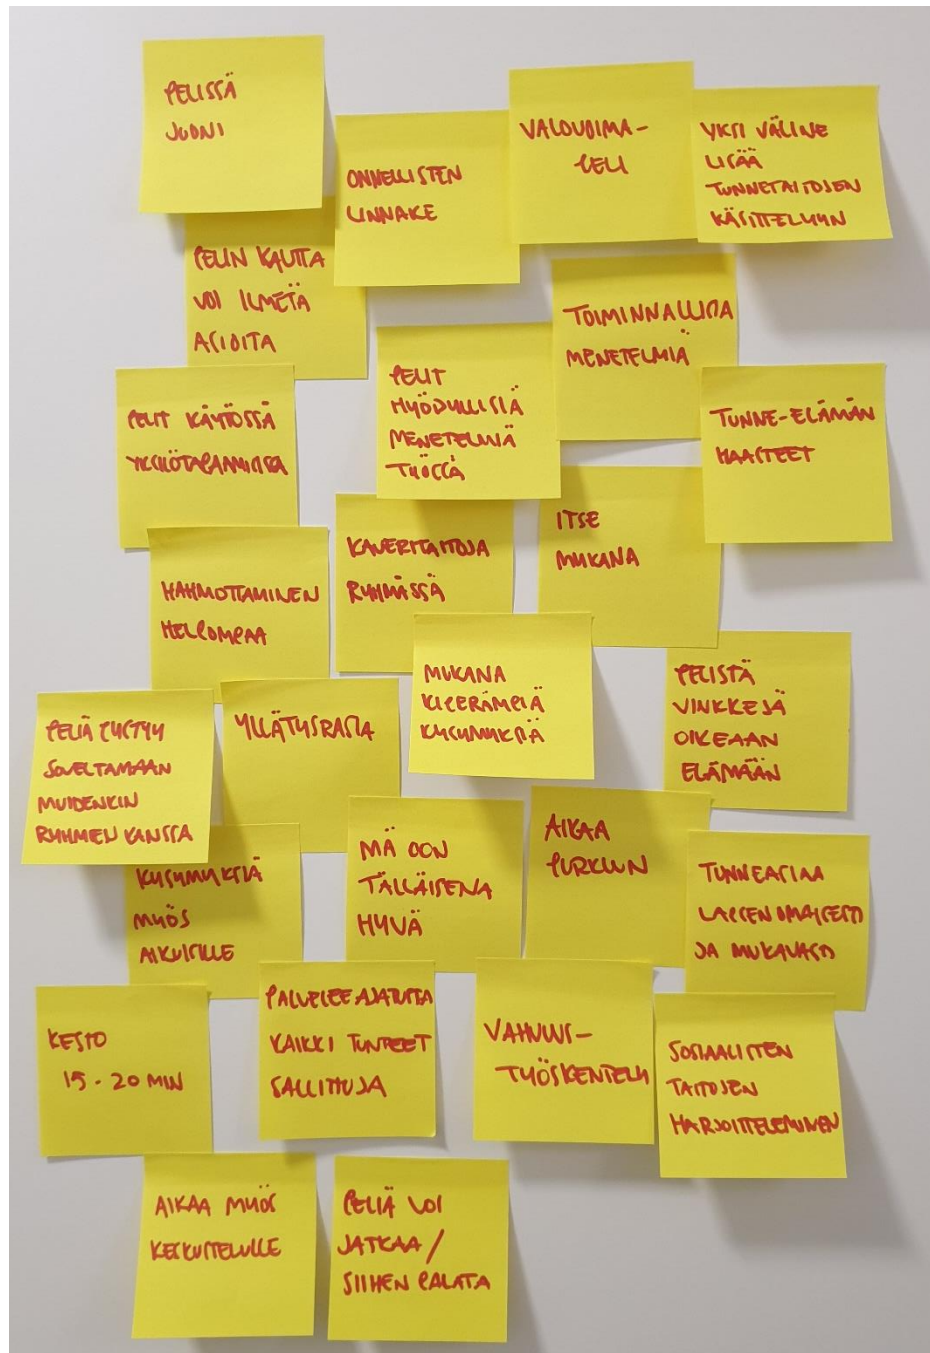 PELISSÄ
JUONI
ONNELLISTEN
LINNAKE
VALOUOIMA-
PELI
YKSI VÄLINE
LISÄÄ
TUNNETAITOJEN
KÄSITTELYYN
PELIN KAUTTA
VOI ILMETÄ
ASIOITA
TOIMINNALLISIA
MENETELMIÄ
PELIT
HYÖDYLLISIÄ
MENETELMIÄ
TYÖSSÄ
PELIT KÄYTÖSSÄ
YKSILÖTAPAAMISISSA
TUNNE-ELÄMÄN
HAASTEET
ITSE
MUKANA
KAVERITAITOJA
RYHMÄSSÄ
HAHMOTTAMINEN
HELPOMPAA
MUKANA
KIPERÄMPIÄ
KYSYMYKSIÄ
PELISTÄ
VINKKEJÄ
OIKEAAN
ELÄMÄÄN
PELIÄ PYSTYY
SOVELTAMAAN
MUIDENKIN
RYHMIEN KANSSA
YLLÄTYSRASIA
KYSYMYKSIÄ
MYÖS
AIKUISILLE
MÄ OON
TÄLLÄISENA
HYVÄ
AIKAA
PURKUUN
TUNNEASIAA
LAPSENOMAISESTI
JA MUKAVASTI
KESTO
15 - 20 MIN
PALVELEE AJATUSTA
KAIKKI TUNTEET
SALLITTUJA
VAHVUUS-
TYÖSKENTELY
SOSIAALISTEN
TAITOJEN
HARJOITTELEMINEN
AIKAA MYÖS
KESKUSTELULLE
PELIÄ VOI
JATKAA /
SIIHEN PALATA